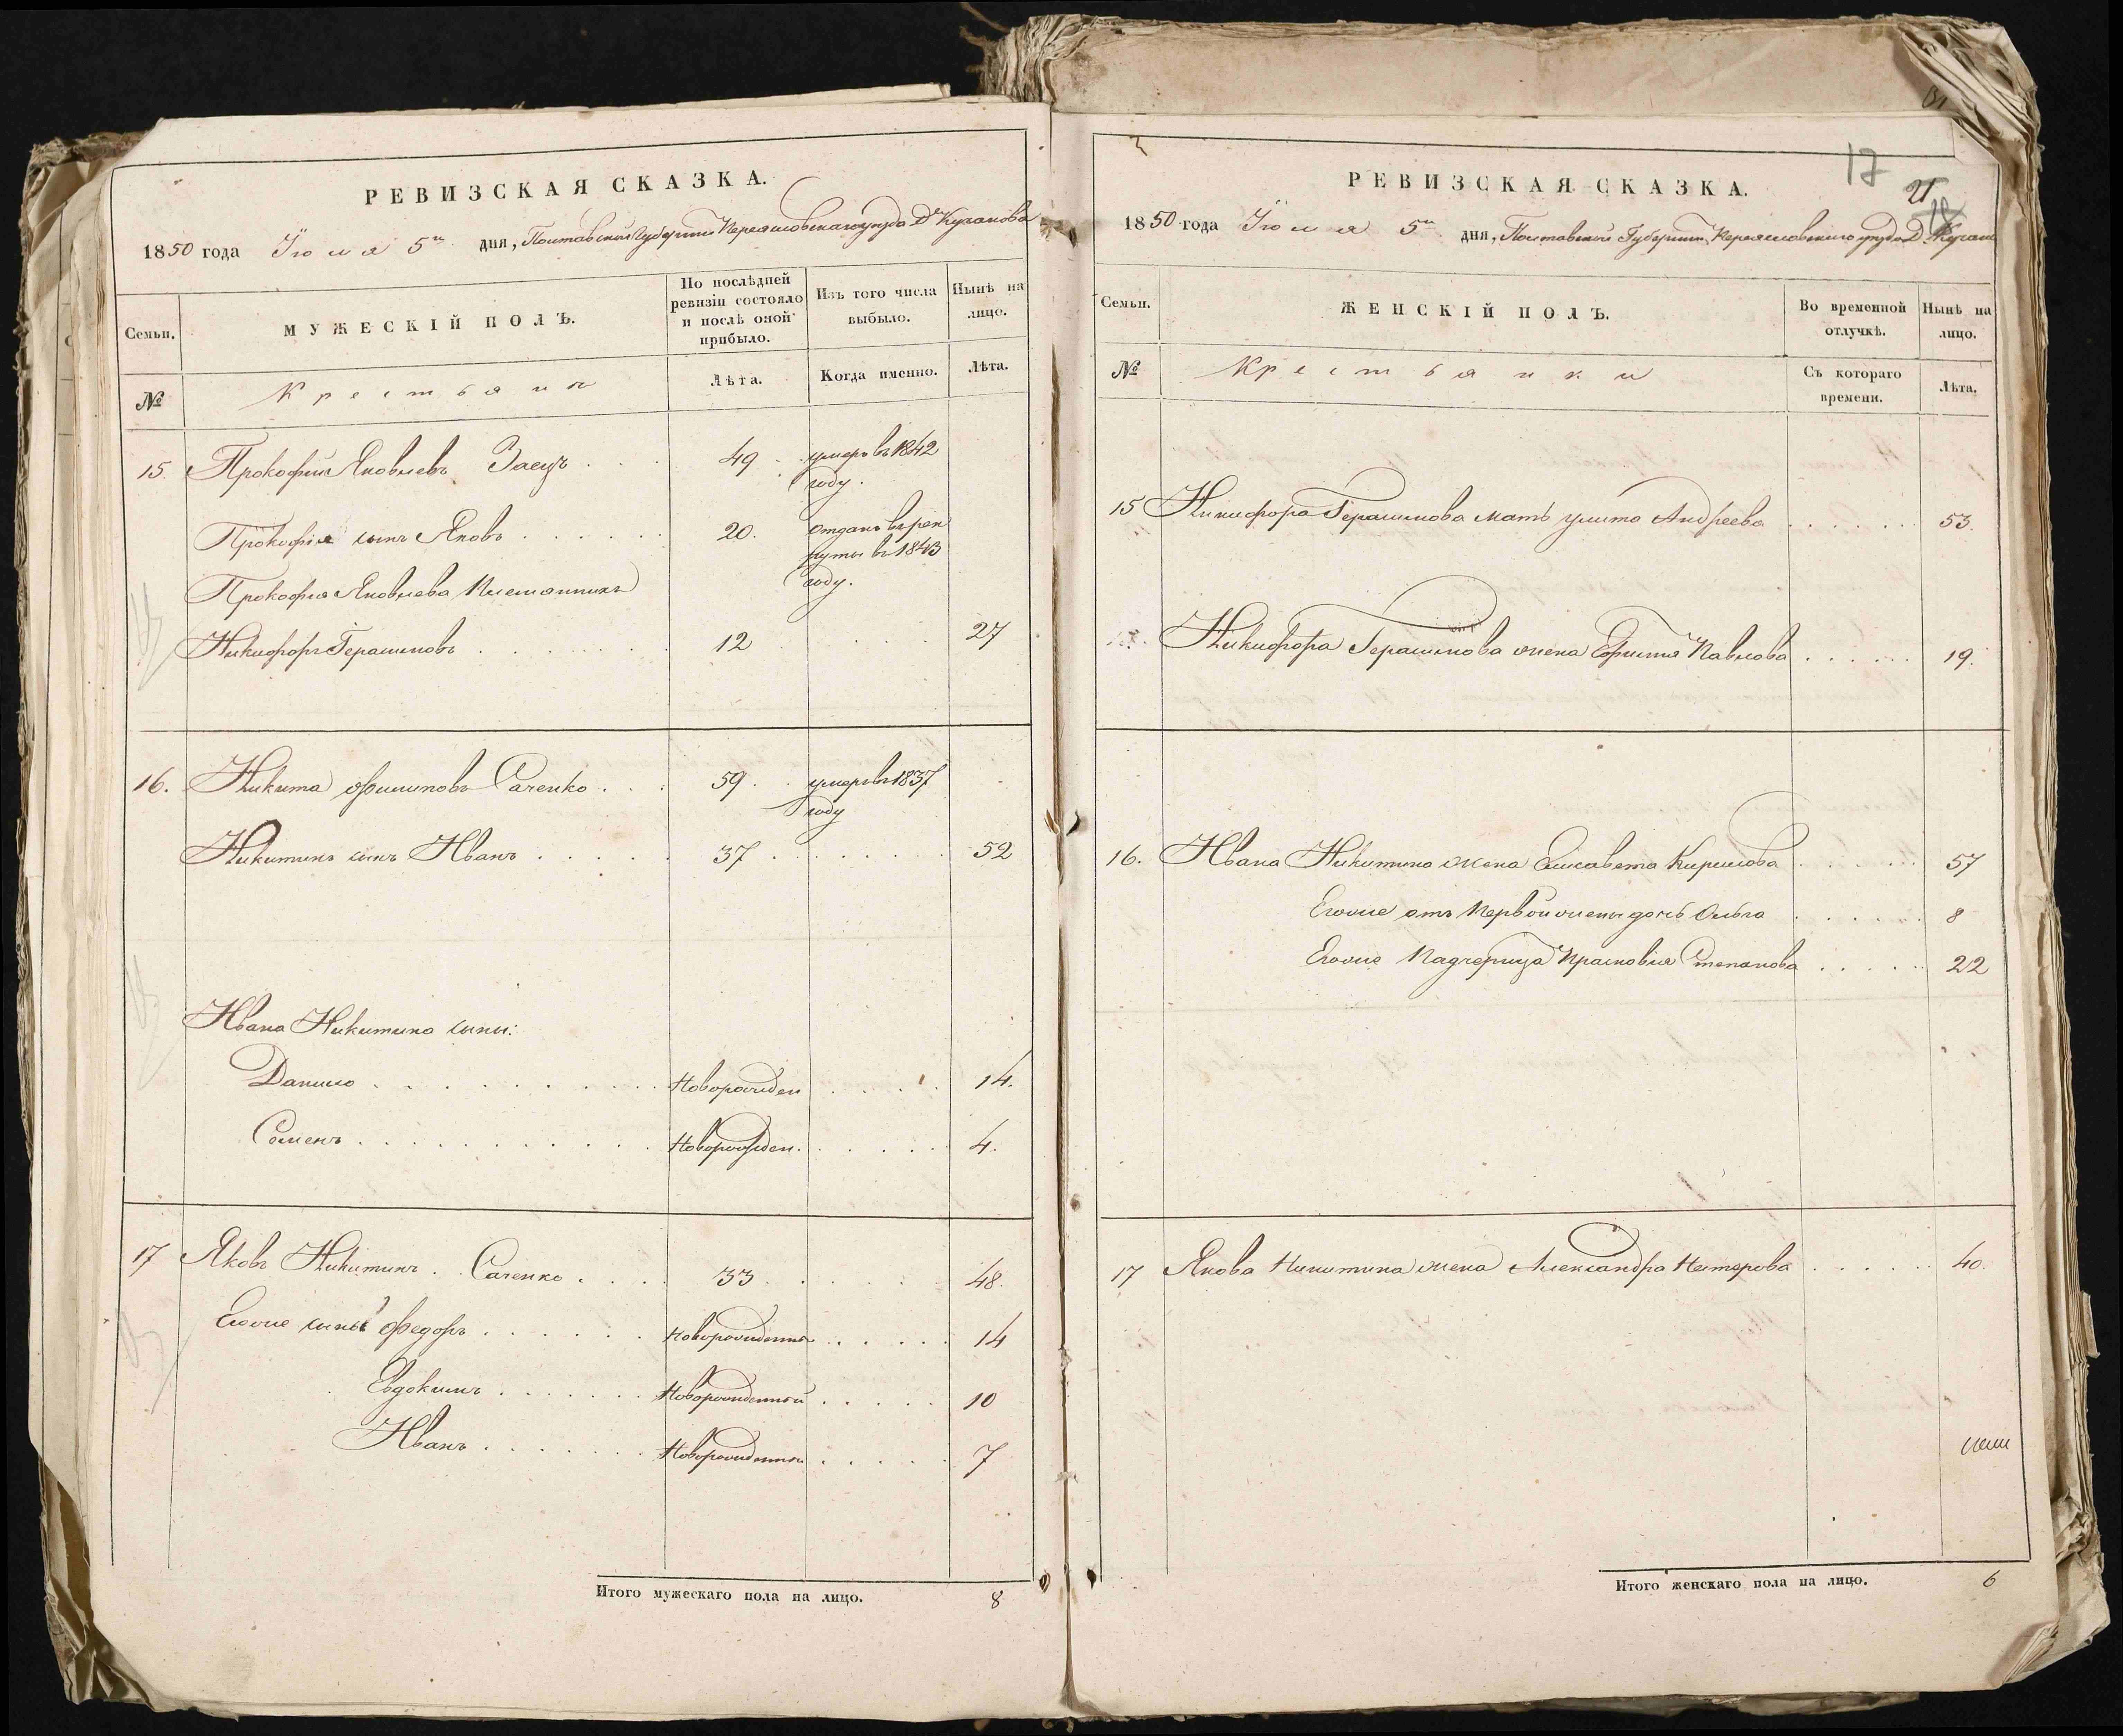 РЕВИЗСКАЯ СКАЗКА.
1850 года Іюля 5го дня, Полтавской Губерніи Переясловскаго уезда Д
Семьи.
МУЖЕСКІЙ ПОЛЪ.
По послѣдней ревизіи состояло и послѣ оной прибыло.
Изъ того числа выбыло.
Нынѣ на лицо.
№
Крестьяни
Лѣта.
Когда именно.
Лѣта.
15. Прокофій Яковлевъ Заецъ . . . 49 . умеръ въ 1842
году.
Прокофія сынъ Яковъ . . . . . . 20. отданъ въ рек
руты въ 1843
году.
Прокофія Яковлева племянникъ
Никифоръ Герасимовъ . . . . . . 12 . . . 27
16. Никита Филиповъ Саченко . . . 59 . . умеръ въ 1837
году
Никитинъ сынъ Иванъ . . . . . 37 . . . . . . . 52
Ивана Никитина сыны:
Данило . . . . . . . . . . новорожден . . . . . 14.
Семенъ . . . . . . . . . . . новорожден. . . . . . 4.
17 Яковъ Никитинъ . Саченко . . . . 33 . . . . . 48.
Егоже сыны Федоръ . . . . . . новорожденны . . . . . 14
Евдокимъ . . . . . . . новорожденный . . . . . 10
Иванъ . . . . . . . новорожденны . . . . . 7
Итого мужескаго пола на лицо. 8
17
21
РЕВИЗСКАЯ СКАЗКА.
1850 года Іюля 5го дня, Полтавской Губерніи, Переясловскаго уезда Д.
Семьи.
ЖЕНСКІЙ ПОЛЪ.
Во временной отлучкѣ.
Нынѣ на лицо.
№
Крестьянки
Съ котораго времени.
Лѣта.
15 Никифора Герасимова мать Улита Андреева . . . . . . 53.
Никифора Герасимова жена Ефимія Павлова . . . . . . 19.
16. Ивана Никитина жена Елисавета Кирилова . . . . . . 57
Егоже отъ первой жены дочь Ольга . . . . . . 8
Егоже падчерица Прасковія Степанова . . . . . . 22
17 Якова Никитина жена Александра Нестерова . . . . . 40.
Итого женскаго пола на лицо. 6